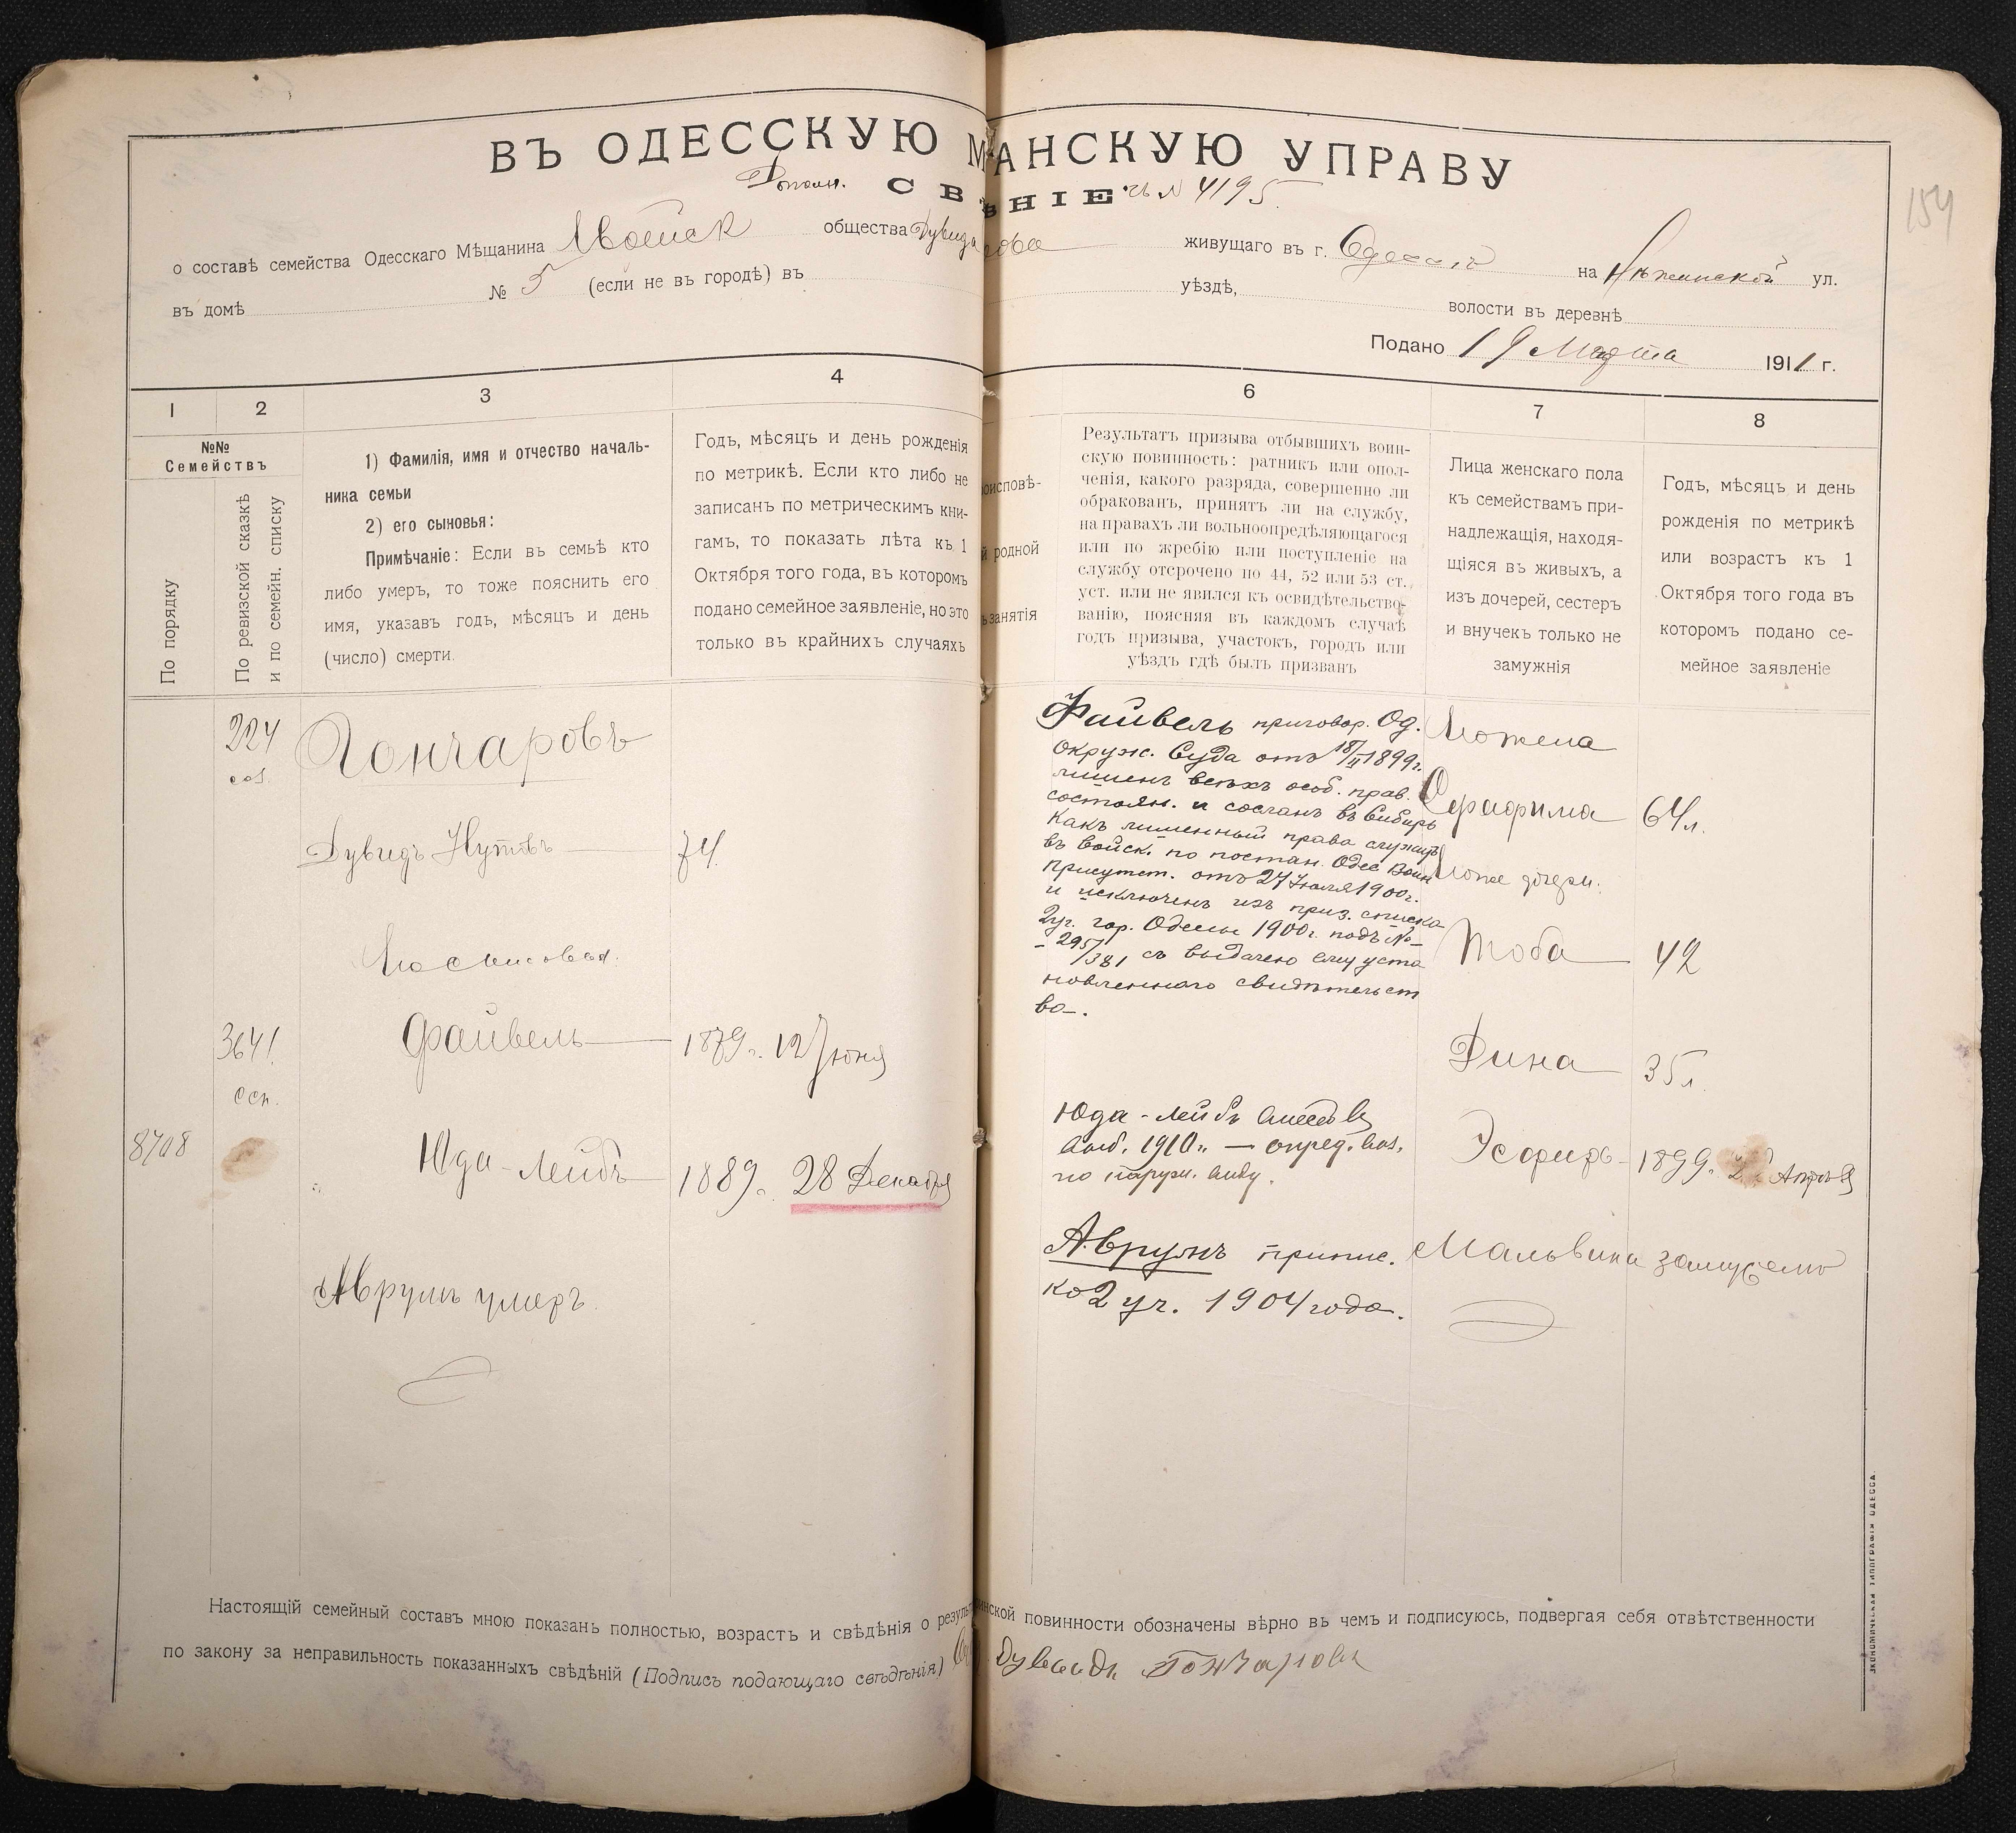 154
ВЪ ОДЕССКУЮ М АНСКУЮ УПРАВУ
Дополн. СВ ѢНІЕ къ № 4195.
о составѣ семейства Одесскаго Мѣщанина общества Дувида живущаго въ г. Одессѣ на Нѣжинской ул.
въ домѣ № 5 (если не въ городѣ) въ уѣздѣ, волости въ деревнѣ
Подано 19 Марта 1911 г.
1 2 3 4 6 7 8
№№ Семействъ
По порядку
По ревизской сказкѣ и по семейн. списку
1) Фамилія, имя и отчество началь-
ника семьи
2) его сыновья:
Примѣчаніе: Если въ семьѣ кто
либо умеръ, то тоже пояснить его
имя, указавъ годъ, мѣсяцъ и день
(число) смерти.
Годъ, мѣсяцъ и день рожденія
по метрикѣ. Если кто либо не
записанъ по метрическимъ кни-
гамъ, то показать лѣта къ 1
Октября того года, въ которомъ
подано семейное заявленіе, но это
только въ крайнихъ случаяхъ
оисповѣ-
й родной
занятія
Результатъ призыва отбывшихъ воин-
скую повинность: ратникъ или опол-
ченія, какого разряда, совершенно ли
обракованъ, принятъ ли на службу,
на правахъ ли вольноопредѣляющагося
или по жребію или поступленіе на
службу отсрочено по 44, 52 или 53 ст.
уст. или не явился къ освидѣтельство-
ванію, поясняя въ каждомъ случаѣ
годъ призыва, участокъ, городъ или
уѣздъ гдѣ былъ призванъ
Лица женскаго пола
къ семействамъ при-
надлежащія, находя-
щіяся въ живыхъ, а
изъ дочерей, сестеръ
и внучекъ только не
замужнія
Годъ, мѣсяцъ и день
рожденія по метрикѣ
или возрастъ къ 1
Октября того года въ
которомъ подано се-
мейное заявленіе
224
Гончаровъ
Дувидъ Нутовъ 74
3641
Файвель 1879 г. 12 Іюня
8708
Юда-Лейбъ 1889 г. 28 Декабря
Аврумъ умеръ
Файвель приговор. Од.
окруж. Суда отъ 18/II 1899 г.
лишенъ всѣхъ особ. прав.
состоян. и сосланъ въ Сибирь
Какъ лишенный права служить
въ войск. по постан. Одес Воин
присутст. отъ 27 Іюля 1900 г.
и исключенъ изъ приз. списка
2 уч. гор. Одессы 1900 г. подъ №
295/381 съ выдачею ему уста
новленнаго свидѣтельст
ва.
Юда-Лейбъ
1910 г. — опред.
по наружн. виду.
Аврумъ припис.
ко 2 уч. 1904 года.
Его жена
Серафима 64 л.
Его дочери:
Тоба 42
Дина 35 л.
Эсфирь 1899 г. 2 Апрѣля
Мальвина замужемъ
Настоящій семейный составъ мною показанъ полностью, возрастъ и свѣдѣнія о резуль инской повинности обозначены вѣрно въ чемъ и подписуюсь, подвергая себя отвѣтственности
по закону за неправильность показанныхъ свѣдѣній (Подпись подающаго свѣдѣнія) Дувидъ Гончаровъ
ЭКОНОМИЧЕСКАЯ ТИПОГРАФІЯ ОДЕССА.